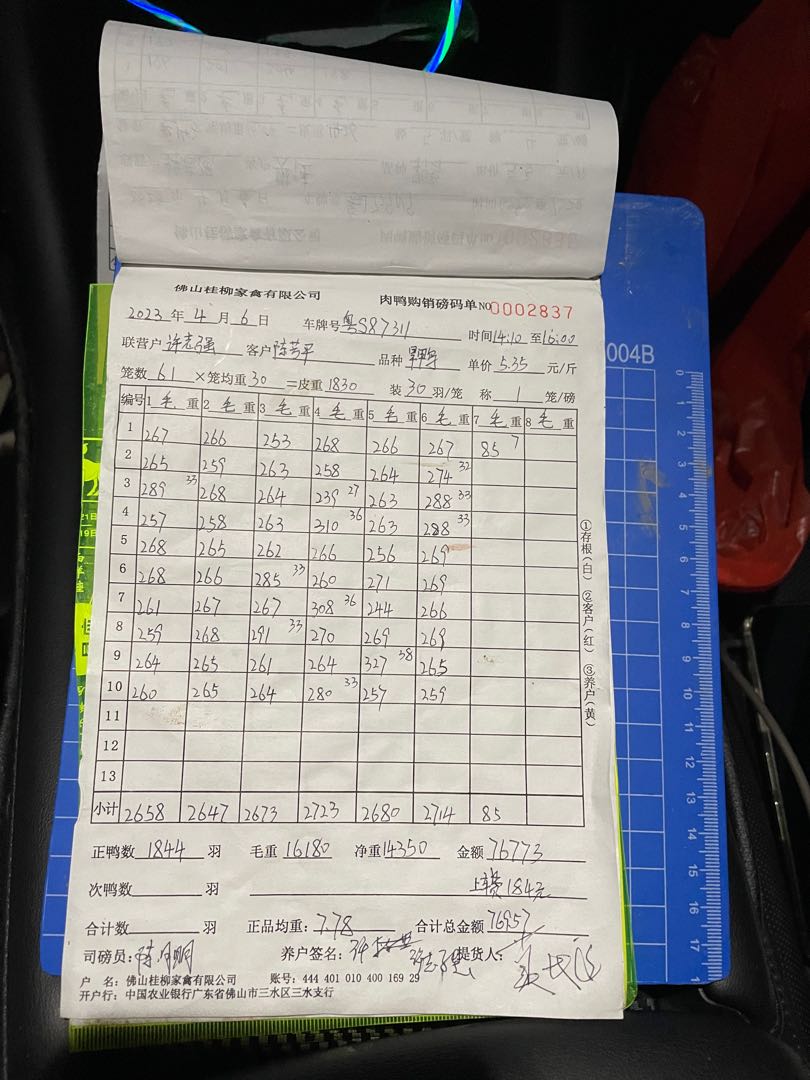 佛山桂柳家禽有限公司 肉鸭购销磅码单 NO 0002837
2023 年 4 月 6 日 车牌号 粤S87311 时间 14:10 至 16:00
联营户 许志强 客户 陈芳平 品种 单价 5.35 元/斤
笼数 61 ×笼均重 30 =皮重 1830 装 30 羽/笼 称 1 笼/磅
编号 1 毛 重 2 毛 重 3 毛 重 4 毛 重 5 毛 重 6 毛 重 7 毛 重 8 毛 重
1 267 266 253 268 266 267 85 7
2 265 259 263 258 264 274 32
3 289 33 268 264 239 27 263 288 33
4 257 258 263 310 36 263 288 33
5 268 265 262 266 256 269
6 268 266 285 33 260 271 269
7 261 267 267 308 36 244 266
8 259 268 291 33 270 269 269
9 264 265 261 264 327 38 265
10 260 265 264 280 33 257 259
11
12
13
小计 2658 2647 2673 2723 2680 2714 85
正鸭数 1844 羽 毛重 16180 净重 14350 金额 76773
次鸭数 羽 上车费184元
合计数 羽 正品均重: 7.78 合计总金额 76957
司磅员: 养户签名: 提货人:
户 名: 佛山桂柳家禽有限公司 账号: 444 401 010 400 169 29
开户行: 中国农业银行广东省佛山市三水区三水支行
①存根(白) ②客户(红) ③养户(黄)
004B
0 1 2 3 4 5 6 7 8 9 10 11 12 13 14 15 16 17